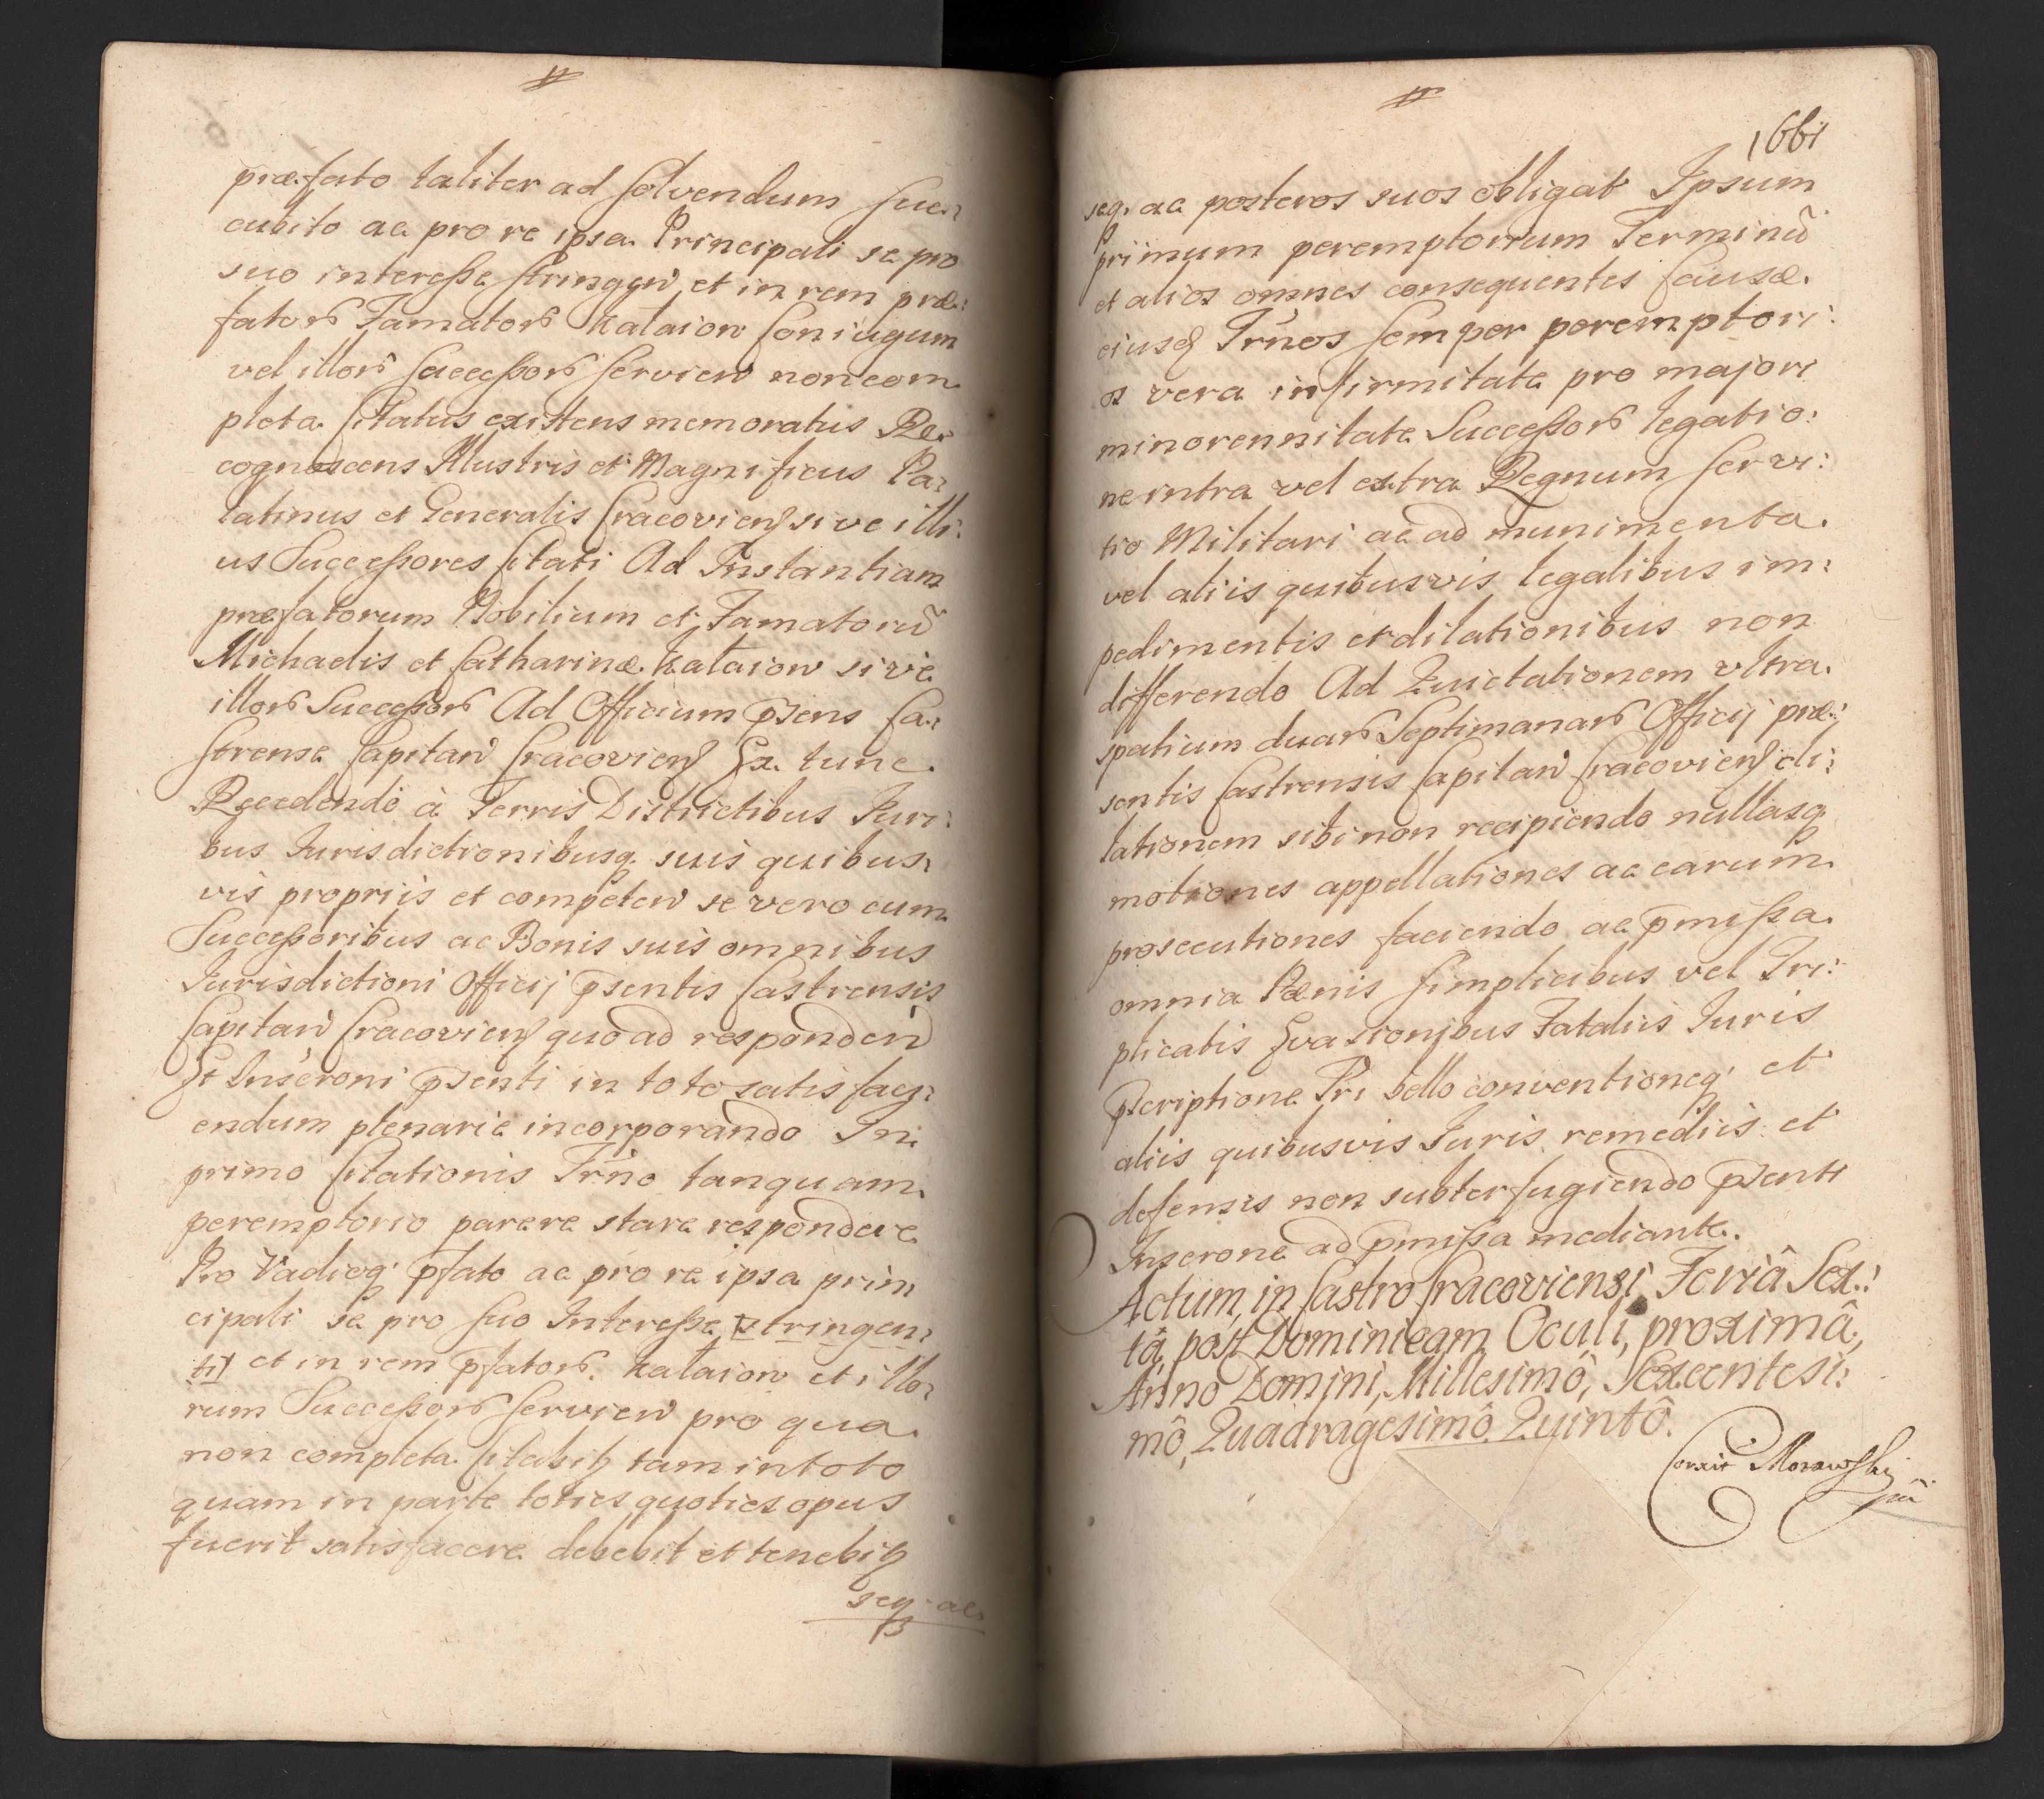 præfato taliter ad solvendum suc:
cubito ac pro re ipsa Principali se pro
suo interesse stringen et in rem præ:
fator Famator Kalaiow Coniugum
vel illor Successor servien non com
pleta Citatus existens memoratus Re:
cognoscens Illustris et Magnificus Pa:
latinus et Generalis Cracovien sive illi:
us Successores Citati Ad Instantiam
præfatorum Nobilium et Famatorū
Michaelis et Catharinæ Kalaiow sive
illor Successor Ad Officium p̄sens Ca:
strense Capitan Cracovien Ex tunc
Recedendo à Terris Districtibus Juri:
bus Jurisdictionibusq suis quibus:
vis propriis et competen se vero cum
Successoribus ac Bonis suis omnibus
Jurisdictioni Officij p̄sentis Castrensis
Capitan Cracovien quo ad responden
Et Inscroni p̄senti in toto satisfaci:
endum plenarie incorporando In
primo Citationis Trño tanquam
peremptorio parere stare respondere
Pro Vadioq p̄fato ac pro re ipsa prin
cipali se pro suo Interesse stringen:
ti et in rem p̄fator Kalaiow et illo:
rum Successor servien pro qua
non completa Citabit tam in toto
quam in parte toties quoties opus
fuerit satisfacere debebit et tenebit
seq ac
1661
seq. ac posteros suos obligat Ipsum
primum peremptorium Terminū
et alios omnes consequentes Causæ
eiusq Trños semper peremptori:
os vera infirmitate pro majori
minorennitate Successor legatio:
ne intra vel extra Regnum servi:
tio Militari ac ad munimenta
vel aliis quibusvis legalibus im:
pedimentis et dilationibus non
differendo Ad Quietationem ultra
spatium duar Septimanar Officij præ:
sentis Castrensis Capitan Cracovien di:
lationem sibi non recipiendo nullasq
motiones appellationes ac earum
prosecutiones faciendo ac p̄missa
omnia Pænis simplicibus vel Tri:
plicatis Evasionibus Fataliis Juris
p̄scriptione Pri bello conventioneq et
aliis quibusvis Juris remediis et
defensis non subterfugiendo p̄senti
Inscrone ad p̄missa mediante.
Actum, in Castro Cracoviensi, Feriâ Sex:
tâ, post Dominicam Oculi, proximâ,
Anno Domini, Millesimô, Sexcentesi:
mô, Quadragesimô Quintô.
Corexit Morawski